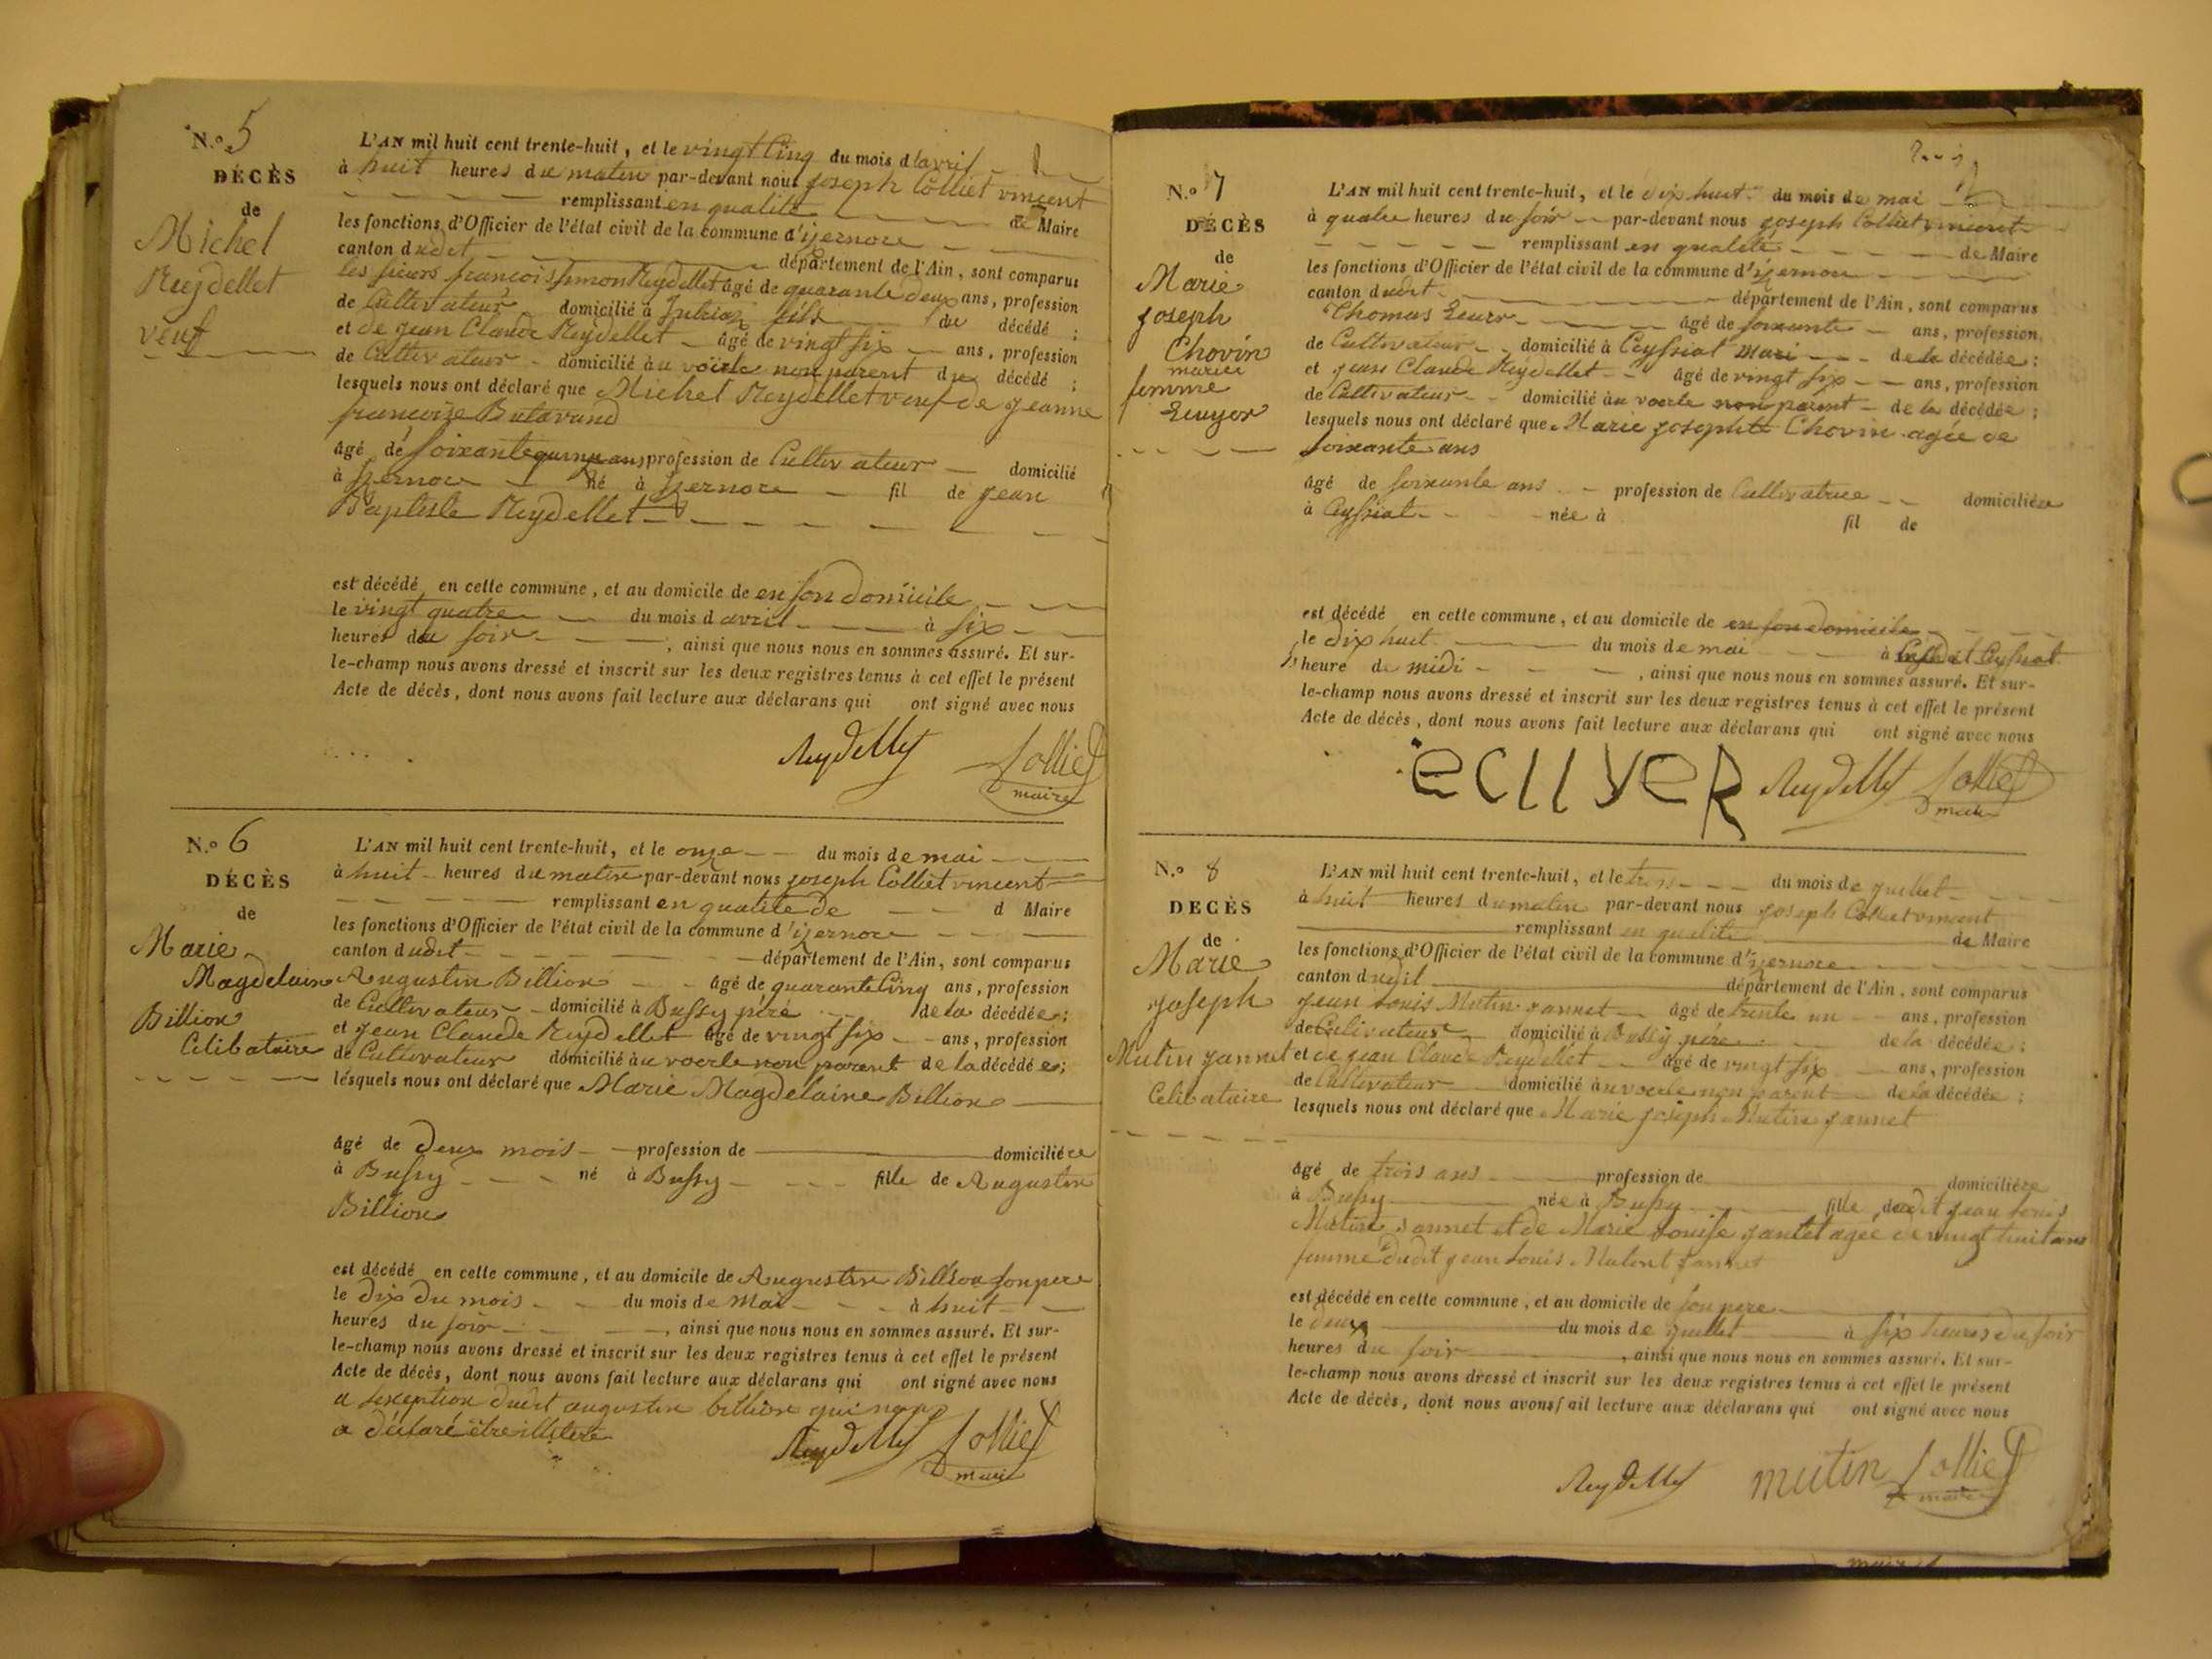 N.o 5
DÉCÈS
de
Michel
Reydellet
veuf
L'AN mil huit cent trente-huit, et le vingt Cinq du mois d'avril
à huit heures du matin par-devant nous joseph Colliet vincent
remplissant en qualité de Maire
les fonctions d'Officier de l'état civil de la commune d'izernore
canton dudit département de l'Ain, sont comparus
les sieurs francois simon Reydellet âgé de quarante deux ans, profession
de Cultivateur domicilié à fils du décédé ;
et de jean Claude Reydellet âgé de vingt six ans, profession
de Cultivateur domicilié au voërle non parent du décédé ;
lesquels nous ont déclaré que Michel Reydellet veuf de jeanne
francoise
âgé de soixante quinze ans profession de Cultivateur domicilié
à izernore né à izernore fil de jean
Baptiste Reydellet
est décédé en cette commune, et au domicile de en son domicile
le vingt quatre du mois d avril à six
heures du soir, ainsi que nous nous en sommes assuré. Et sur-
le-champ nous avons dressé et inscrit sur les deux registres tenus à cet effet le présent
Acte de décès, dont nous avons fait lecture aux déclarans qui ont signé avec nous
Reydellet Colliet
maire
N.o 6
DÉCÈS
de
Marie
Magdelaine
Billion
Celibataire
L'AN mil huit cent trente-huit, et le onze du mois de mai
à huit heures du matin par-devant nous joseph Colliet vincent
remplissant en qualité de d Maire
les fonctions d'Officier de l'état civil de la commune d'izernore
canton dudit département de l'Ain, sont comparus
Augustin Billion âgé de quarante Cinq ans, profession
de Cultivateur domicilié à Bussy père de la décédée ;
et jean Claude Reydellet âgé de vingt six ans, profession
de Cultivateur domicilié au voerle non parent de la décédée ;
lesquels nous ont déclaré que Marie Magdelaine Billion
âgé de deux mois profession de domiciliée
à Bussy né à Bussy fille de Augustin
Billion
est décédé en cette commune, et au domicile de Augustin Billion son pere
le dix du mois du mois de Mai à huit
heures du soir, ainsi que nous nous en sommes assuré. Et sur-
le-champ nous avons dressé et inscrit sur les deux registres tenus à cet effet le présent
Acte de décès, dont nous avons fait lecture aux déclarans qui ont signé avec nous
a lexeption dudit augustin billion qui nous
a déclaré être illitéré
Reydellet Colliet
maire
N.o 7
DÉCÈS
de
Marie
joseph
Chovin
mariée
femme
L'AN mil huit cent trente-huit, et le dix huit du mois de mai
à quatre heures du soir par-devant nous joseph Colliet vincent
remplissant en qualité de Maire
les fonctions d'Officier de l'état civil de la commune d'izernore
canton dudit département de l'Ain, sont comparus
Thomas âgé de soixante ans, profession
de Cultivateur domicilié à Ceyssiat mari de la décédée ;
et jean Claude Reydellet âgé de vingt six ans, profession
de Cultivateur domicilié au voerle non parent de la décédée ;
lesquels nous ont déclaré que Marie josephte Chovin agée de
soixante ans
âgé de soixante ans profession de Cultivatrice domiciliée
à Ceyssiat née à fil de
est décédé en cette commune, et au domicile de en son domicile
le dix huit du mois de mai à Ceyssiat
heure de midi, ainsi que nous nous en sommes assuré. Et sur-
le-champ nous avons dressé et inscrit sur les deux registres tenus à cet effet le présent
Acte de décès, dont nous avons fait lecture aux déclarans qui ont signé avec nous
eCUyeR Reydellet Colliet
maire
N.o 8
DECÈS
de
Marie
joseph
Mutin jannet
Celibataire
L'AN mil huit cent trente-huit, et le trois du mois de juillet
à huit heures du matin par-devant nous joseph Colliet vincent
remplissant en qualité de Maire
les fonctions d'Officier de l'état civil de la commune d'izernore
canton dudit département de l'Ain, sont comparus
jean Louis Mutin jannet âgé de trente un ans, profession
de Cultivateur domicilié à Bussy père de la décédée ;
et de jean Claude Reydellet âgé de vingt six ans, profession
de Cultivateur domicilié au voerle non parent de la décédée ;
lesquels nous ont déclaré que Marie joseph Mutin jannet
âgé de trois ans profession de domiciliée
à Bussy née à Bussy fille dudit jean Louis
Mutin jannet et de Marie Louise jantet agée de vingt huit ans
femme dudit jean Louis Mutint jannet
est décédé en cette commune, et au domicile de son pere
le deux du mois de juillet à six heures du soir
heures du soir, ainsi que nous nous en sommes assuré. Et sur-
le-champ nous avons dressé et inscrit sur les deux registres tenus à cet effet le présent
Acte de décès, dont nous avons fait lecture aux déclarans qui ont signé avec nous
Reydellet mutin Colliet
maire